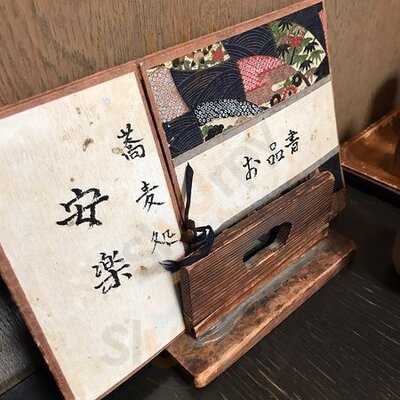 蕎麦処
安楽
お品書